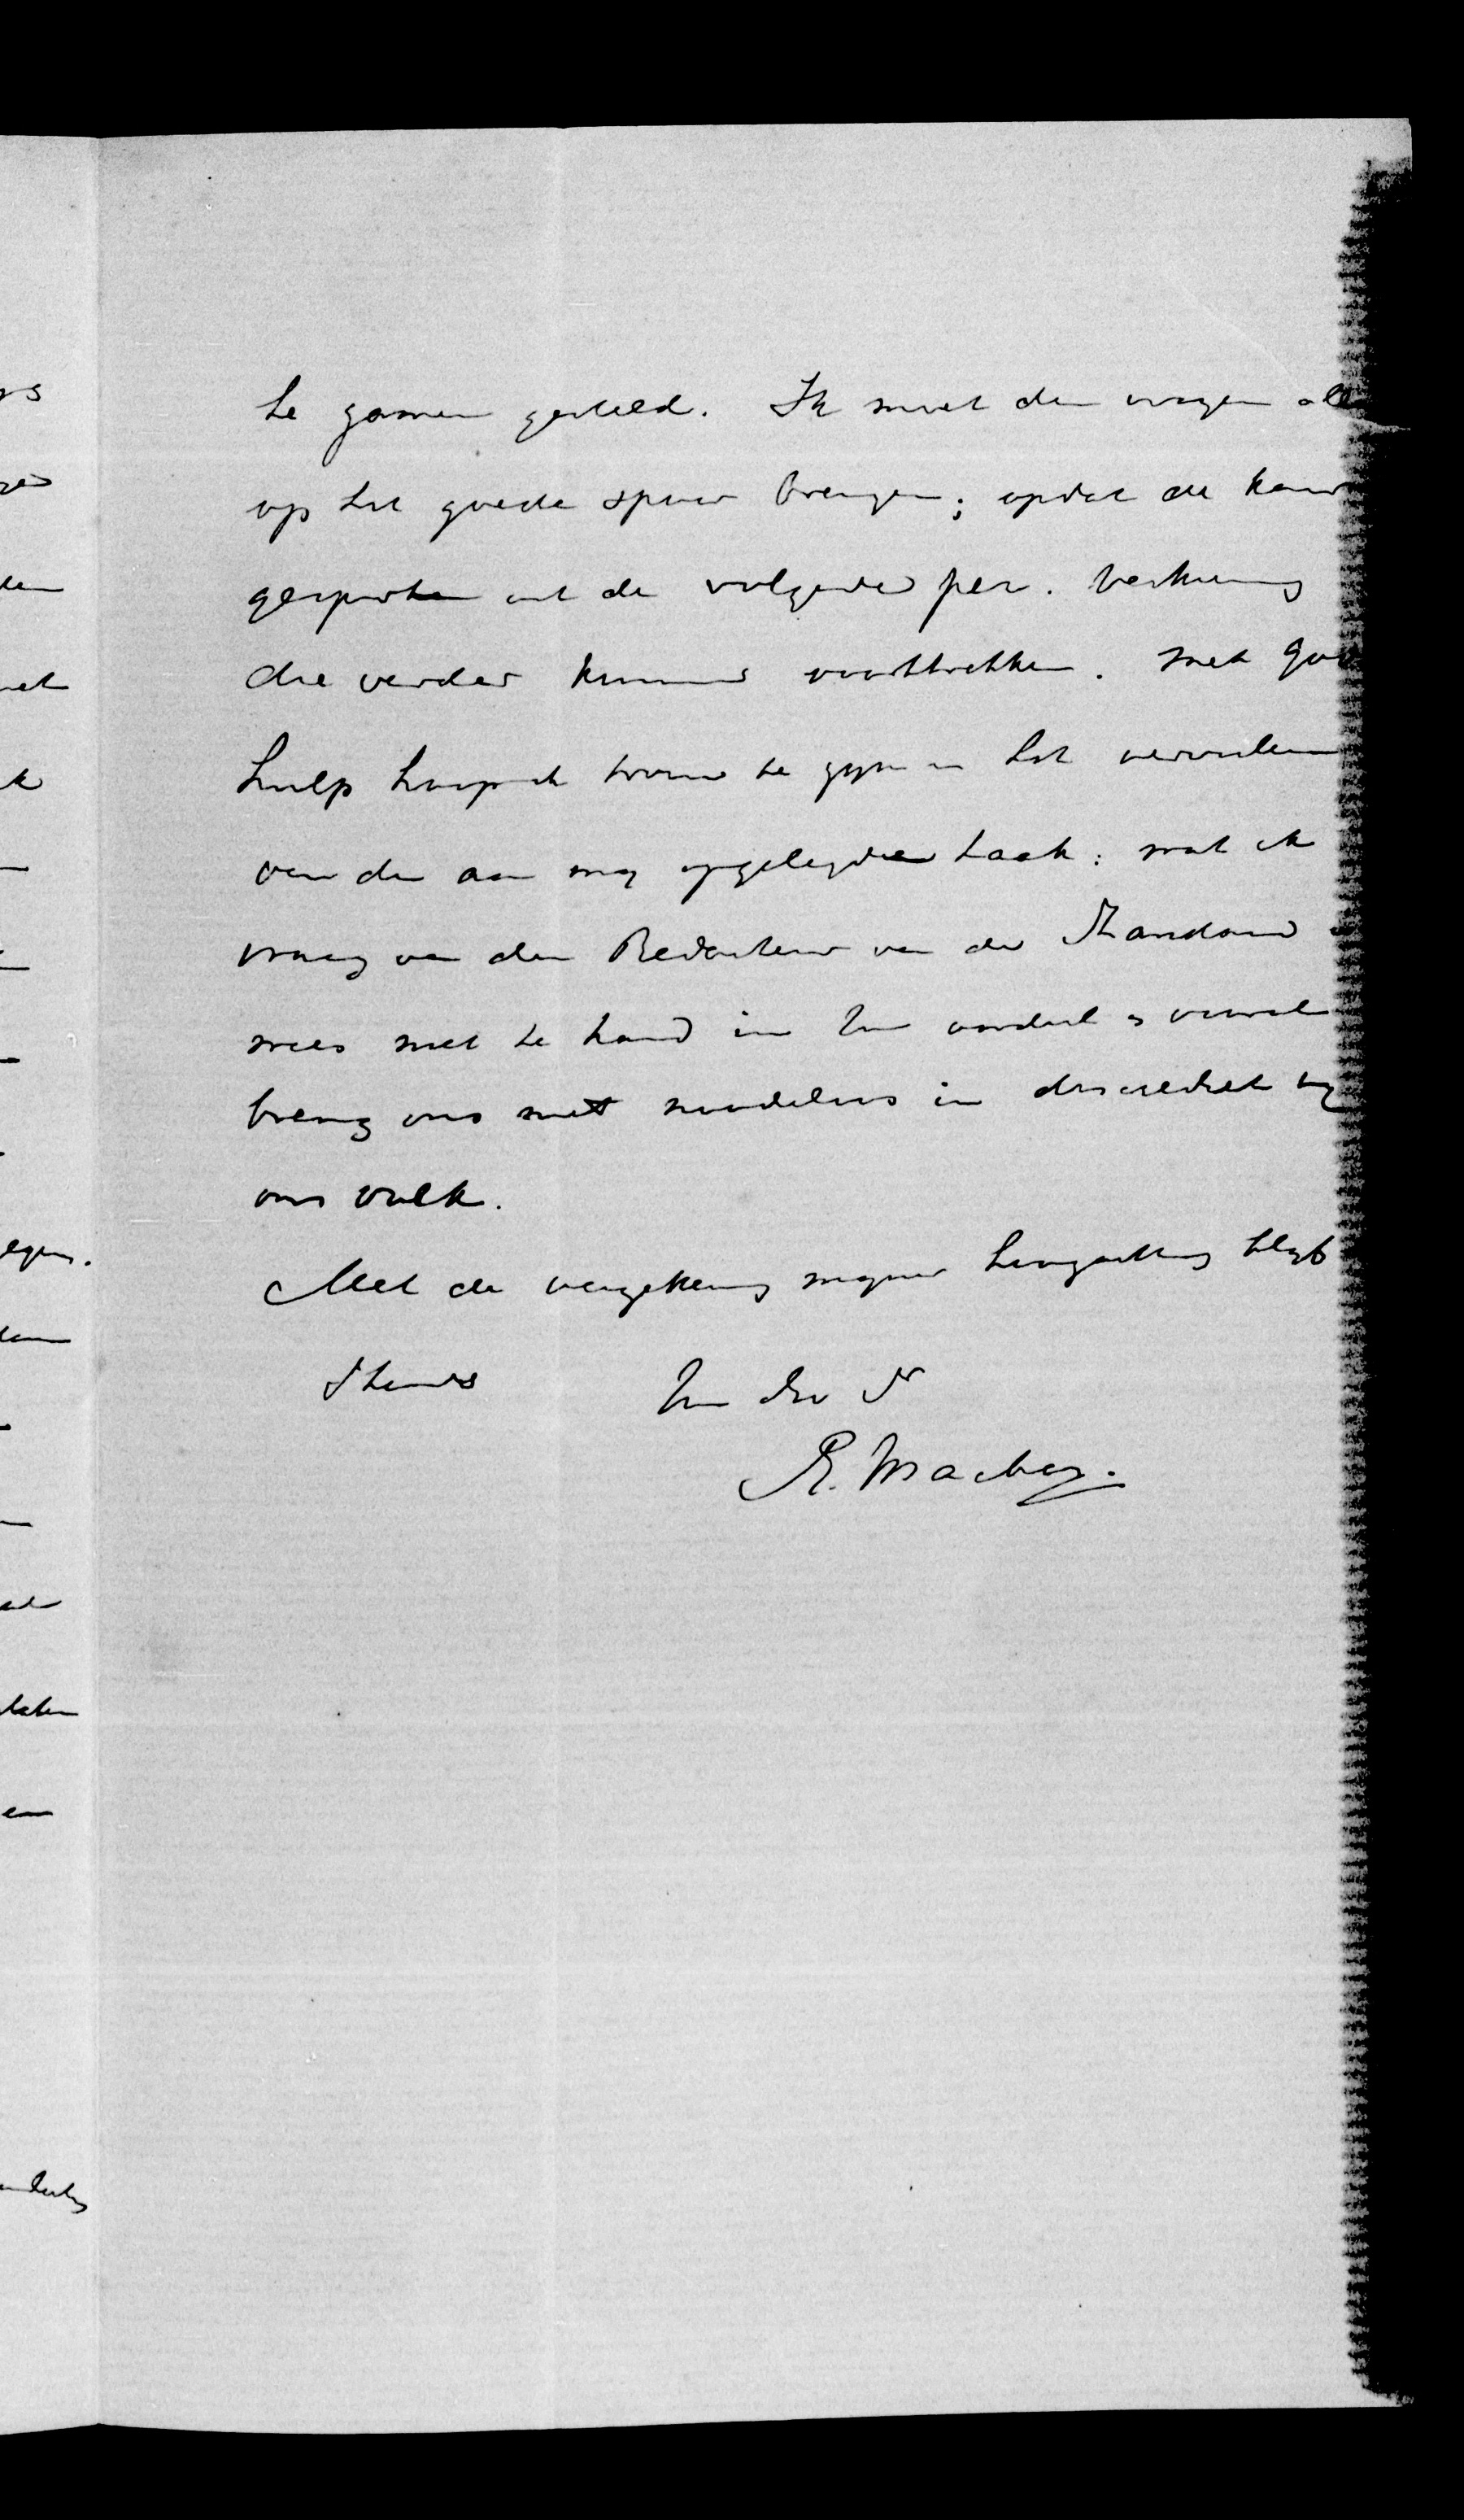 te zamen gesteld. Ik moet den wagen all
op het goede spoor brengen; opdat de kam
gesproten uit de volgende per. verkiezing
die verder kunnen voorttrekken. Met god
hulp hoop ik trouw te zyn in het vervullen
van de aan my opgelegde taak: wat ik
vraag van den Redacteur van de Standaard
wees niet te hard in Uw oordeel & vooral
breng ons niet noodeloos in discrediet by
ons volk.
Met de verzekering myner hoogachting blyf
Uw Dw Dr
Æ. Mackay.